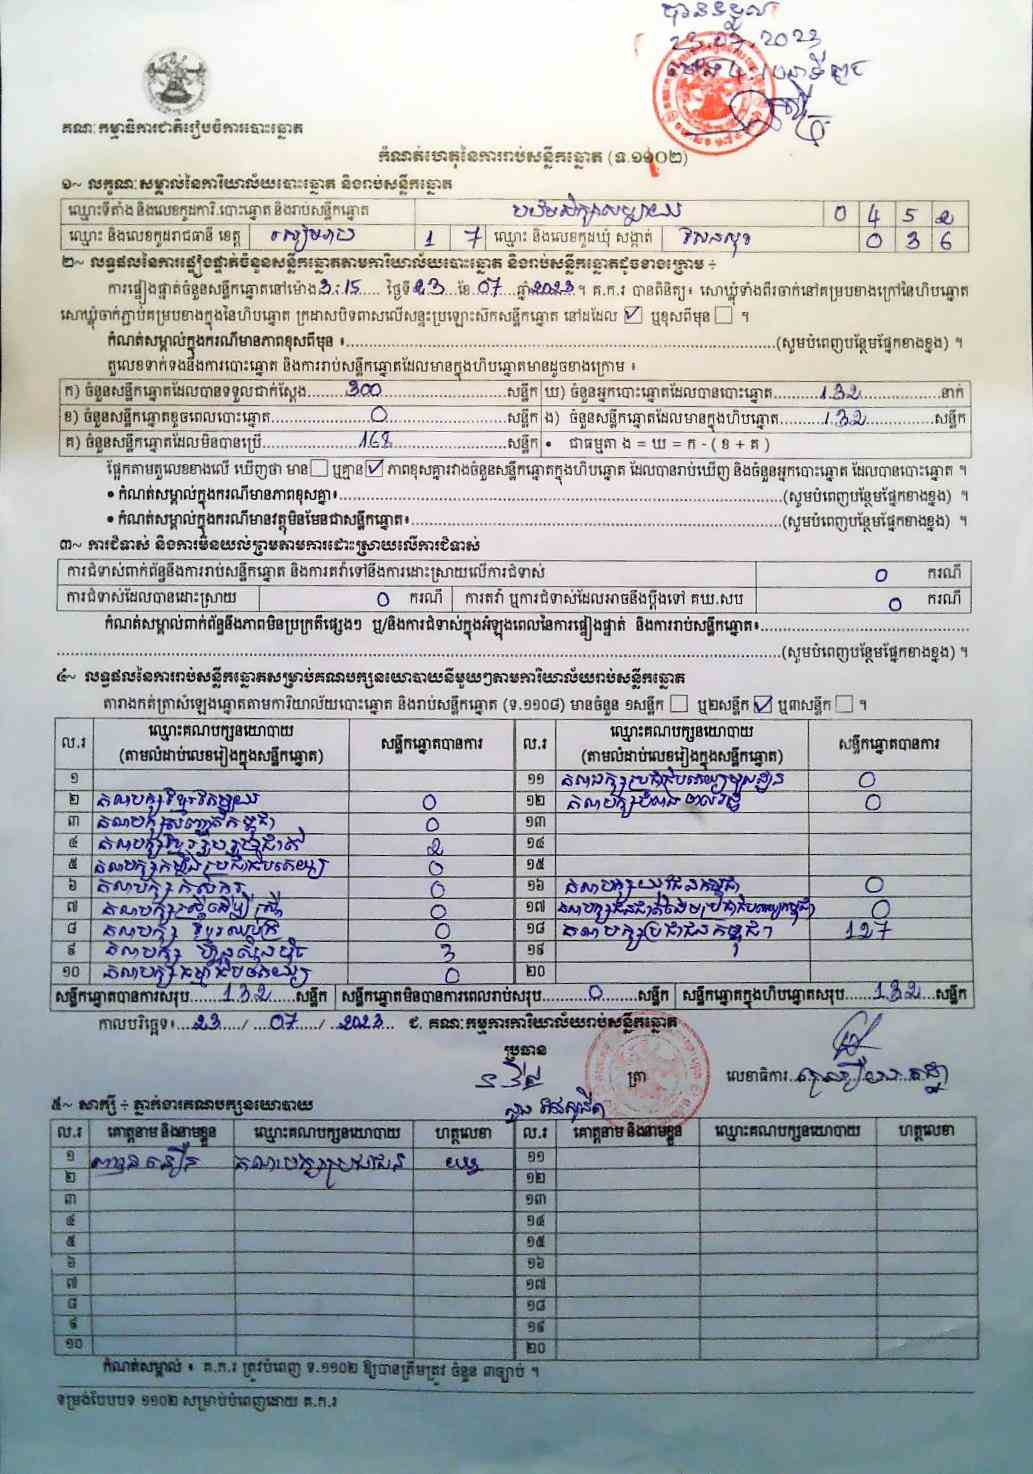 បានទទួល
គណៈកម្មាធិការជាតិរៀបចំការបោះឆ្នោត
កំណត់ហេតុនៃការរាប់សន្លឹកឆ្នោត (ទ.១១០២)
១~ លក្ខណៈសម្គាល់នៃការិយាល័យបោះឆ្នោត និងរាប់សន្លឹកឆ្នោត
ឈ្មោះទីតាំង និងលេខកូដការិ.បោះឆ្នោត និងរាប់សន្លឹកឆ្នោត 0 4 5 2
ឈ្មោះ និងលេខកូដរាជធានី ខេត្ត សៀមរាប 1 7 ឈ្មោះ និងលេខកូដឃុំ សង្កាត់ 0 3 6
២~ លទ្ធផលនៃការផ្ទៀងផ្ទាត់ចំនួនសន្លឹកឆ្នោតតាមការិយាល័យបោះឆ្នោត និងរាប់សន្លឹកឆ្នោតដូចខាងក្រោម ÷
ការផ្ទៀងផ្ទាត់ចំនួនសន្លឹកឆ្នោតនៅម៉ោង 3:15 ថ្ងៃទី 23 ខែ 07 ឆ្នាំ 2023 ។ គ.ក.រ បានពិនិត្យ៖ សោឃ្លុំទាំងពីរចាក់នៅគម្របខាងក្រៅនៃហិបឆ្នោត
សោឃ្លុំចាក់ភ្ជាប់គម្របខាងក្នុងនៃហិបឆ្នោត ក្រដាសបិទពាសលើសន្ទះប្រឡោះសឹកសន្លឹកឆ្នោត នៅដដែល ☑ ឬខុសពីមុន ☐ ។
កំណត់សម្គាល់ក្នុងករណីមានភាពខុសពីមុន ៖ (សូមបំពេញបន្ថែមផ្នែកខាងខ្នង) ។
តួលេខទាក់ទងនឹងការបោះឆ្នោត និងការរាប់សន្លឹកឆ្នោតដែលមានក្នុងហិបឆ្នោតមានដូចខាងក្រោម ៖
ក) ចំនួនសន្លឹកឆ្នោតដែលបានទទួលជាក់ស្តែង 300 សន្លឹក ឃ) ចំនួនអ្នកបោះឆ្នោតដែលបានបោះឆ្នោត 132 នាក់
ខ) ចំនួនសន្លឹកឆ្នោតខូចពេលបោះឆ្នោត 0 សន្លឹក ង) ចំនួនសន្លឹកឆ្នោតដែលមានក្នុងហិបឆ្នោត 132 សន្លឹក
គ) ចំនួនសន្លឹកឆ្នោតដែលមិនបានប្រើ 168 សន្លឹក • ជាធម្មតា ង = ឃ = ក - ( ខ + គ )
ផ្អែកតាមតួលេខខាងលើ ឃើញថា មាន ☐ ឬគ្មាន ☑ ភាពខុសគ្នារវាងចំនួនសន្លឹកឆ្នោតក្នុងហិបឆ្នោត ដែលបានរាប់ឃើញ និងចំនួនអ្នកបោះឆ្នោត ដែលបានបោះឆ្នោត ។
• កំណត់សម្គាល់ក្នុងករណីមានភាពខុសគ្នា៖ (សូមបំពេញបន្ថែមផ្នែកខាងខ្នង) ។
• កំណត់សម្គាល់ក្នុងករណីមានវត្ថុមិនមែនជាសន្លឹកឆ្នោត៖ (សូមបំពេញបន្ថែមផ្នែកខាងខ្នង) ។
៣~ ការជំទាស់ និងការមិនយល់ព្រមតាមការដោះស្រាយលើការជំទាស់
ការជំទាស់ពាក់ព័ន្ធនឹងការរាប់សន្លឹកឆ្នោត និងការតវ៉ាទៅនឹងការដោះស្រាយលើការជំទាស់ 0 ករណី
ការជំទាស់ដែលបានដោះស្រាយ 0 ករណី ការតវ៉ា ឬការជំទាស់ដែលអាចនឹងប្តឹងទៅ គឃ.សប 0 ករណី
កំណត់សម្គាល់ពាក់ព័ន្ធនឹងភាពមិនប្រក្រតីផ្សេងៗ ឬ/និងការជំទាស់ក្នុងអំឡុងពេលនៃការផ្ទៀងផ្ទាត់ និងការរាប់សន្លឹកឆ្នោត៖
(សូមបំពេញបន្ថែមផ្នែកខាងខ្នង) ។
៤~ លទ្ធផលនៃការរាប់សន្លឹកឆ្នោតសម្រាប់គណបក្សនយោបាយនីមួយៗតាមការិយាល័យរាប់សន្លឹកឆ្នោត
តារាងកត់ត្រាសំឡេងឆ្នោតតាមការិយាល័យបោះឆ្នោត និងរាប់សន្លឹកឆ្នោត (ទ.១១០៨) មានចំនួន ១សន្លឹក ☐ ឬ២សន្លឹក ☑ ឬ៣សន្លឹក ☐ ។
ល.រ ឈ្មោះគណបក្សនយោបាយ (តាមលំដាប់លេខរៀងក្នុងសន្លឹកឆ្នោត) សន្លឹកឆ្នោតបានការ ល.រ ឈ្មោះគណបក្សនយោបាយ (តាមលំដាប់លេខរៀងក្នុងសន្លឹកឆ្នោត) សន្លឹកឆ្នោតបានការ
១ ១១ 0
២ គណបក្សខ្មែរតែមួយ 0 ១២ 0
៣ គណបក្សសញ្ជាតិកម្ពុជា 0 ១៣
៤ គណបក្សខ្មែររួបរួមជាតិ 2 ១៤
៥ គណបក្សកម្លាំងប្រជាធិបតេយ្យ 0 ១៥
៦ គណបក្សកសិករ 0 ១៦ គណបក្សយុវជនកម្ពុជា 0
៧ គណបក្សស្ត្រីដើម្បីស្ត្រី 0 ១៧ គណបក្សជនជាតិដើមប្រជាធិបតេយ្យកម្ពុជា 0
៨ គណបក្ស 0 ១៨ គណបក្សប្រជាជនកម្ពុជា 127
៩ គណបក្ស ហ៊្វុនស៊ិនប៉ិច 3 ១៩
១០ គណបក្សធម្មាធិបតេយ្យ 0 ២០
សន្លឹកឆ្នោតបានការសរុប 132 សន្លឹក សន្លឹកឆ្នោតមិនបានការពេលរាប់សរុប 0 សន្លឹក សន្លឹកឆ្នោតក្នុងហិបឆ្នោតសរុប 132 សន្លឹក
កាលបរិច្ឆេទ៖ 23 / 07 / 2023 ជ. គណៈកម្មការការិយាល័យរាប់សន្លឹកឆ្នោត
ប្រធាន
ត្រា លេខាធិការ
៥~ សាក្សី ÷ ភ្នាក់ងារគណបក្សនយោបាយ
ល.រ គោត្តនាម និងនាមខ្លួន ឈ្មោះគណបក្សនយោបាយ ហត្ថលេខា ល.រ គោត្តនាម និងនាមខ្លួន ឈ្មោះគណបក្សនយោបាយ ហត្ថលេខា
១ គណបក្សប្រជាជន ១១
២ ១២
៣ ១៣
៤ ១៤
៥ ១៥
៦ ១៦
៧ ១៧
៨ ១៨
៩ ១៩
១០ ២០
កំណត់សម្គាល់ ៖ គ.ក.រ ត្រូវបំពេញ ទ.១១០២ ឱ្យបានត្រឹមត្រូវ ចំនួន ៣ច្បាប់ ។
ទម្រង់បែបបទ ១១០២ សម្រាប់បំពេញដោយ គ.ក.រ